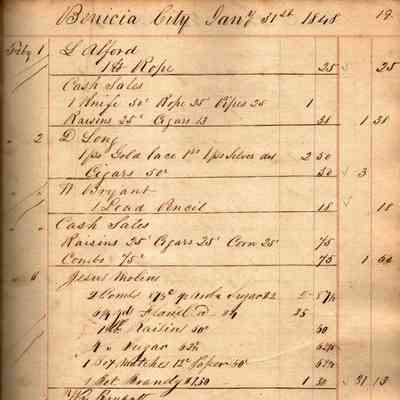 Benicia City Jany 31st 1848 19
Feby 1 L Alford
1 lb Rope 25 25
Cash Sales
1 Knife 50c Rope 25 Pipes 25 1
Raisins 25c Cigars 13 38 1 38
2 D Long
1 ps Gold lace 1 ps Silver 2 50
Cigars 50c 50 3
Bryant
1 Lead Pencil 18 18
Cash Sales
Raisins 25c Cigars 25c Corn 25c 75
Combs 75c 75 1 50
6 Jesus Molino
2 Combs Sugar
Flanel
1 lb Raisin 50c 50
Sugar
1 Box Matches 12c Paper 50c 62½
1 Bot Brandy $1.50 1 50 31 13